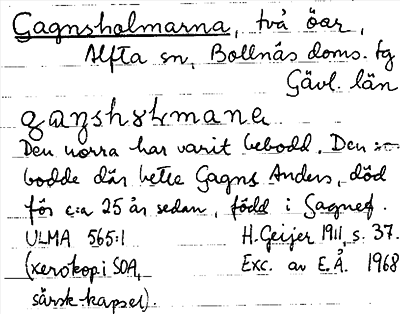 Gagnsholmarna, två öar,
Alfta sn, Bollnäs doms. tg
Gävl. län
Den norra har varit bebodd. Den som
bodde där hette Gagns Anders, död
för c:a 25 år sedan, född i Gagnef.
ULMA 565:1 H. Geijer 1911, s. 37.
(xerokop i SOA, Exc. av E.Å. 1968
särsk kapsel).